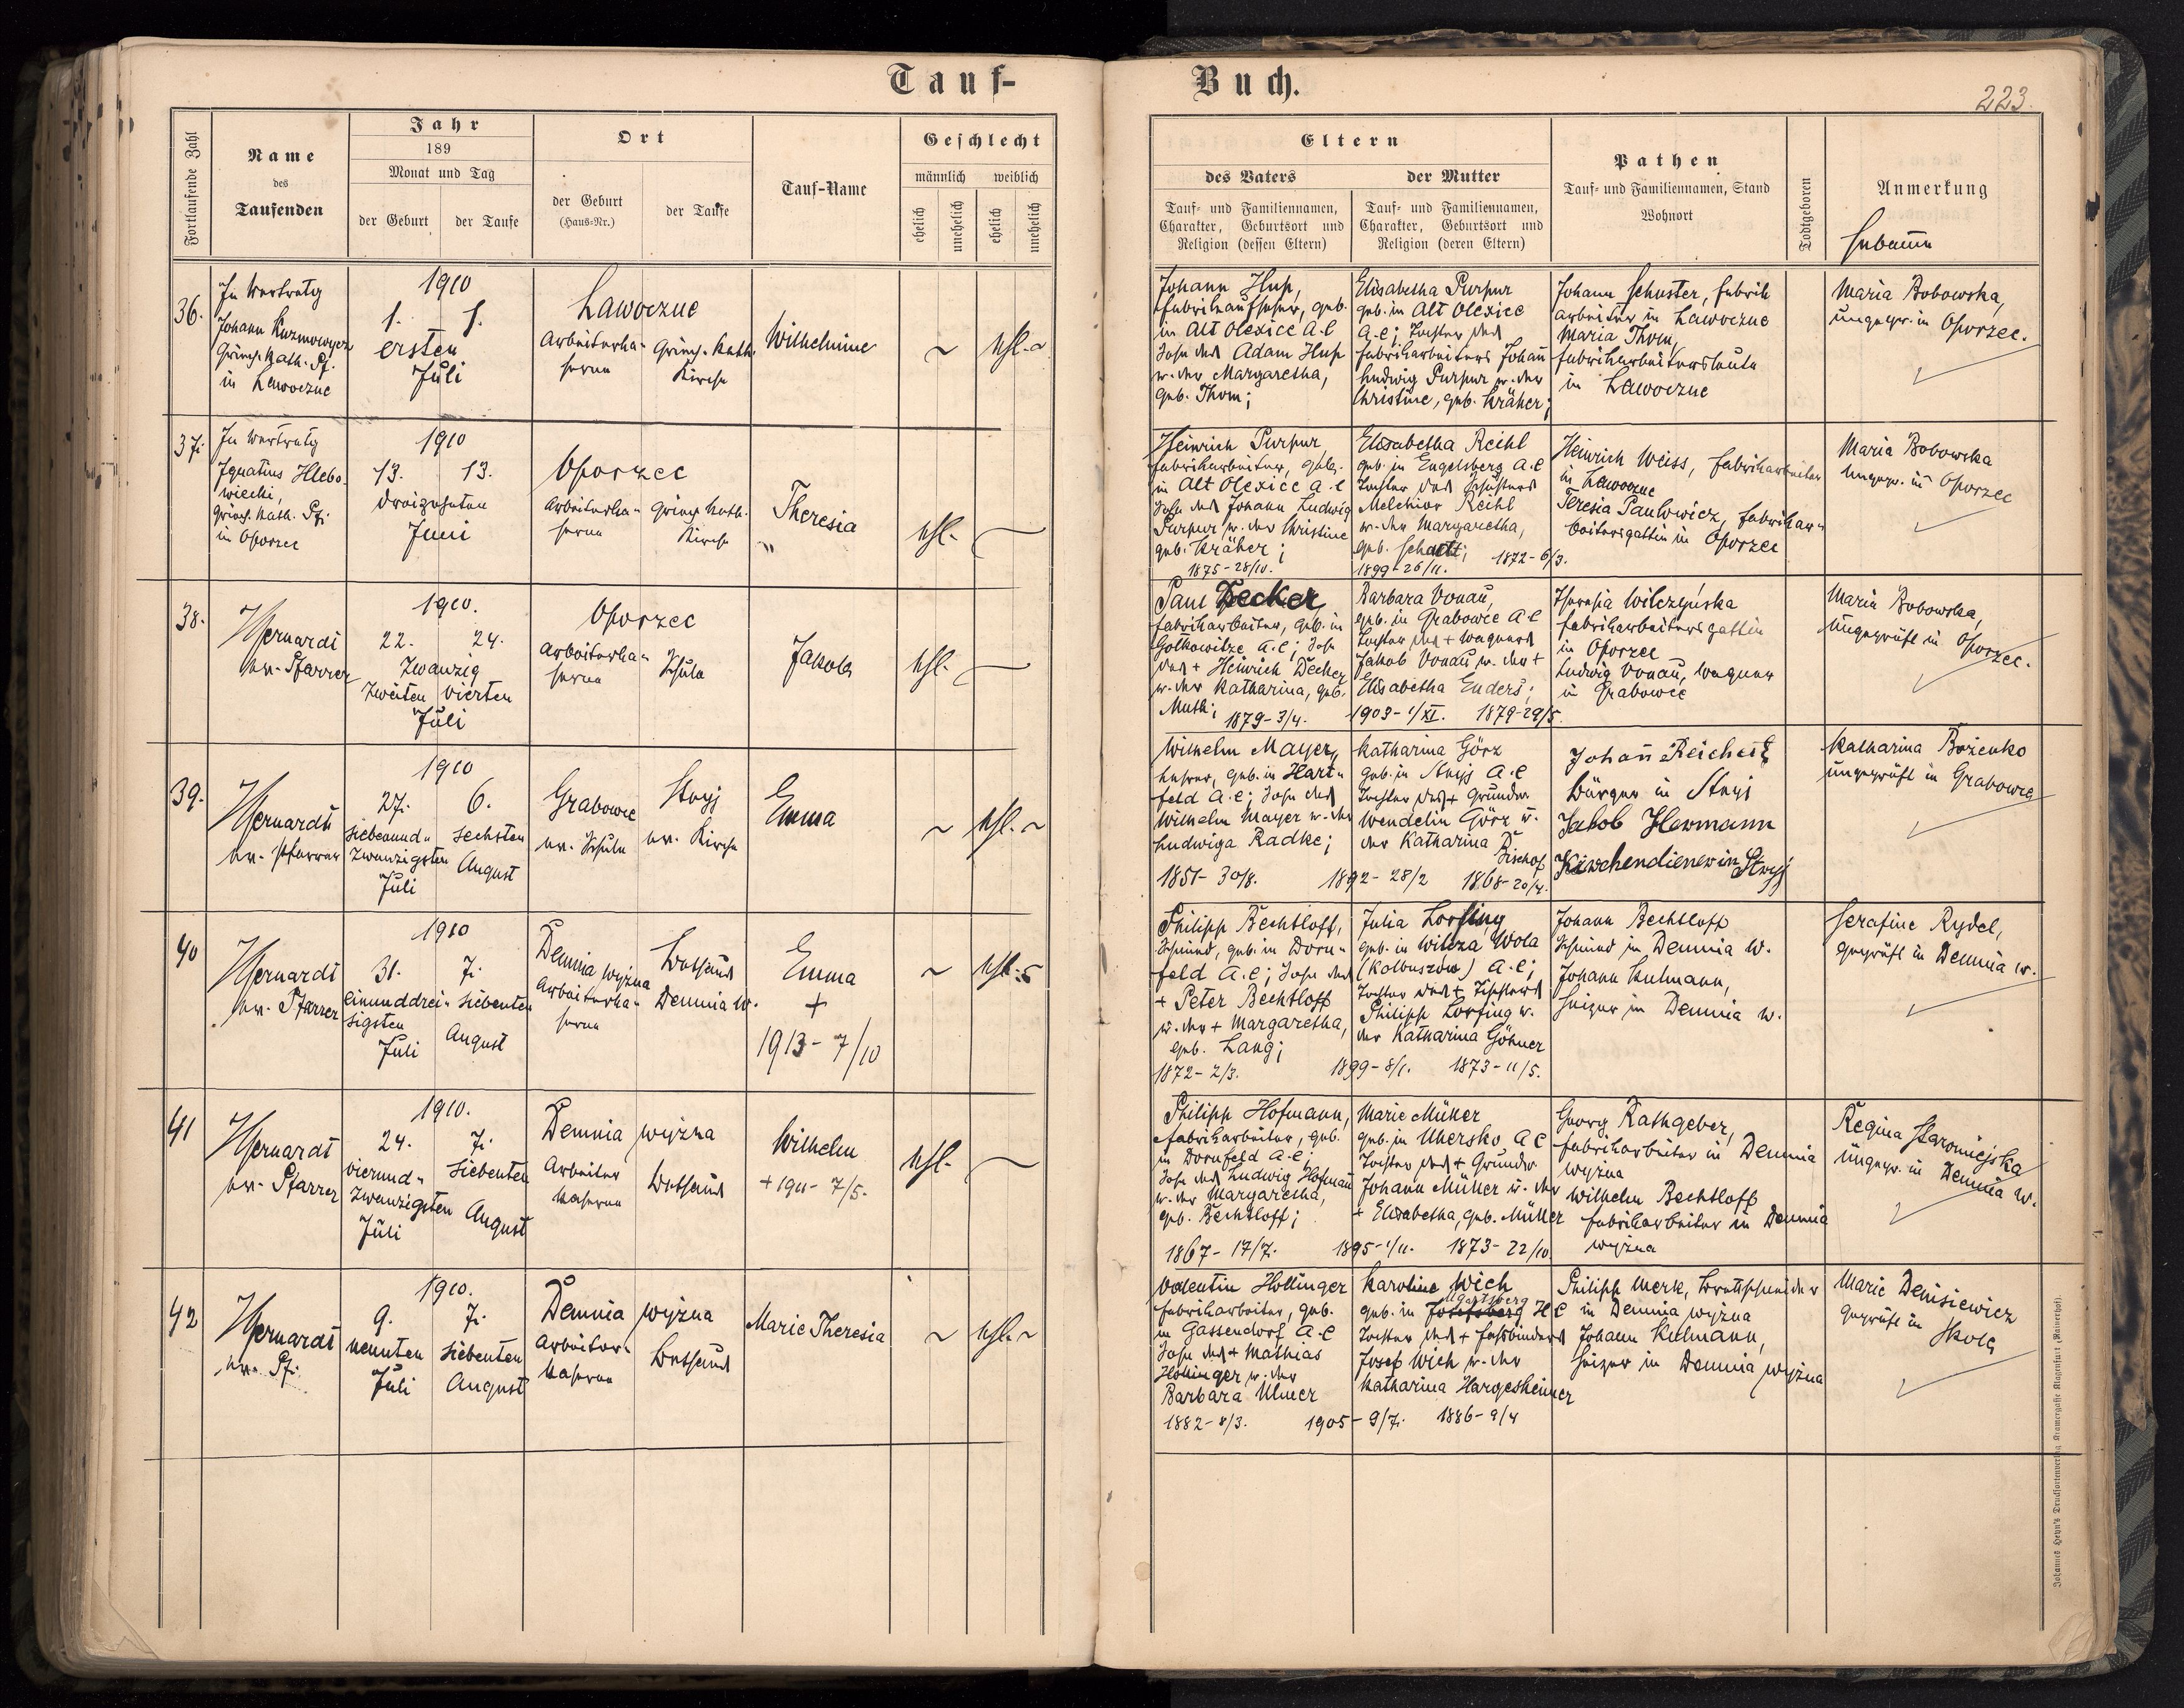 Tauf-
Buch.
223.
Fortlaufende Zahl
Name
des
Taufenden
Jahr
189
Monat und Tag
der Geburt
der Taufe
Ort
der Geburt
(Haus-Nr.)
der Taufe
Tauf-Name
Geschlecht
männlich
weiblich
ehelich
unehelich
ehelich
unehelich
Eltern
des Vaters
Tauf- und Familiennamen,
Charakter, Geburtsort und
Religion (dessen Eltern)
der Mutter
Tauf- und Familiennamen,
Charakter, Geburtsort und
Religion (deren Eltern)
Pathen
Tauf- und Familiennamen, Stand
Wohnort
Todtgeboren
Anmerkung
Hebamme
36.
In Vertretg
Johann Kuzmowycz
Griech. Kath. Pf.
in Lawoczne
1910
1. 1.
ersten
Juli
Lawoczne
Arbeiterka-
serne
Griech. Kath.
Kirche
Wilhelmine
~
ehl. ~
Johann Hup,
Fabrikaufseher, geb.
in Alt Olexice A.C
Sohn des Adam Hup
u. der Margaretha,
geb. Thom;
Elisabetha Purpur
geb. in Alt Olexice
A.C; Tochter des
Fabrikarbeiters Johann
Ludwig Purpur u. der
Christine, geb. Kräher;
Johann Schuster, Fabrik
arbeiter in Lawoczne
Maria Thom,
Fabrikarbeitersleute
in Lawoczne
Maria Bobowska,
ungepr. in Oporzec.
37.
In Vertretg
Ignatius Hlebo-
wiecki,
Griech. Kath. Pf.
in Oporzec
1910
13. 13.
dreizehnten
Juni
Oporzec
Arbeiterka-
serne
Griech. Kath.
Kirche
Theresia
ehl.
Heinrich Purpur
Fabrikarbeiter, geb.
in Alt Olexice A.C
Sohn des Johann Ludwig
Purpur u. der Christine
geb. Kräher;
1875 - 28/10.
Elisabetha Reihl
geb. in Engelsberg A.C
Tochter des Schusters
Melchior Reihl
u. der Margaretha,
geb. Schatt;
1899 - 26/11. 1872 - 6/3.
Heinrich Weiss, Fabrikarbeiter
in Lawoczne
Teresia Pawlowicz, Fabrikar-
beitersgattin in Oporzec
Maria Bobowska
ungepr. in Oporzec
38.
Hernardt
ev. Pfarrer
1910.
22. 24.
Zwanzig
Zweiten vierten
Juli
Oporzec
Arbeiterka-
serne
Schule
Jakob
ehl.
Paul Decker
Fabrikarbeiter, geb. in
Golkowitze A.C; Sohn
des + Heinrich Decker
u. der Katharina, geb.
Muth;
1879 - 3/4.
Barbara Vonau,
geb. in Grabowce A.C
Tochter des + Wagners
Jakob Vonau u. der +
Elisabetha Enders;
1903 - 1/XI. 1879 - 29/5.
Theresia Wilczyńska
Fabrikarbeitersgattin
in Oporzec
Ludwig Vonau, Wagner
in Grabowce
Maria Bobowska,
ungeprüft in Oporzec.
39.
Hernardt
ev. Pfarrer
1910
27. 6.
Siebenund- sechsten
Zwanzigsten August
Juli
Grabowce
ev. Schule
Stryj
ev. Kirche
Emma
~
ehl. ~
Wilhelm Mayer,
Lehrer, geb. in Hart-
feld A.C; Sohn des
Wilhelm Mayer u. der
Ludwiga Radke;
1851 - 30/8.
Katharina Görz
geb. in Stryj A.C
Tochter des + Grundw
Wendelin Görz u.
der Katharina
Bischof
1892 - 28/2 1868 - 20/4.
Johann Reichert
Bürger in Stryj
Jakob Hermann
Kirchendiener in Stryj
Katharina Bozenko
ungeprüft in Grabowce
40
Hernardt
ev. Pfarrer
1910
31. 7.
einunddrei- siebenten
sigsten August
Juli
Demnia wyżna
Arbeiterka-
serne
Betsaal
Demnia w.
Emma
+
1913 - 7/10
~
ehl.
Philipp Bechtloff,
Schmied, geb. in Dorn-
feld A.C; Sohn des
+ Peter Bechtloff
u. der + Margaretha,
geb. Lang;
1872 - 2/3.
Julia Lorfing
geb. in Wilcza Wola
(Kolbuszów) A.C;
Tochter des + Tischlers
Philipp Lorfing u.
der Katharina Göhner
1899 - 8/1. 1873 - 11/5.
Johann Bechtloff
Schmied in Demnia w.
Johann Kulmann,
Heizer in Demnia w.
Serafine Rydel,
geprüft in Demnia w.
41
Hernardt
ev. Pfarrer
1910.
24. 7.
vierund- siebenten
Zwanzigsten August
Juli
Demnia wyżna
Arbeiter
kaserne
Betsaal
Wilhelm
+ 1911 - 7/5.
ehl.
Philipp Hofmann,
Fabrikarbeiter, geb.
in Dornfeld A.C;
Sohn des Ludwig Hofmann
u. der Margaretha,
geb. Bechtloff;
1867 - 17/7.
Marie Müller
geb. in Uhersko A.C
Tochter des + Grundw
Johann Müller u. der
+ Elisabetha, geb. Müller
1895 - 1/11. 1873 - 22/10.
Georg Rathgeber,
Fabrikarbeiter in Demnia
wyżna
Wilhelm Bechtloff
Fabrikarbeiter in Demnia
wyżna
Regina Staromiejska
ungepr. in Demnia w.
42
Hernardt
ev. Pf.
1910.
9. 7.
neunten siebenten
Juli August
Demnia wyżna
Arbeiter-
kaserne
Betsaal
Marie Theresia
~
ehl. ~
Valentin Hollinger
Fabrikarbeiter, geb.
in Gassendorf A.C
Sohn des + Mathias
Hollinger u. der
Barbara Ulmer
1882 - 8/3.
Karoline Wich
Ugartsberg
geb. in Josefsberg H.C
Tochter des + Fassbinders
Josef Wich u. der
Katharina Hargesheimer
1905 - 9/7. 1886 - 9/4
Philipp Merk, Brettschneider
in Demnia wyżna
Johann Kulmann,
Heizer in Demnia wyżna
Marie Denisiewicz
geprüft in
Skole
Johannes Heyn's Drucksortenverlag Kramergasse Klagenfurt (Rainerhof).